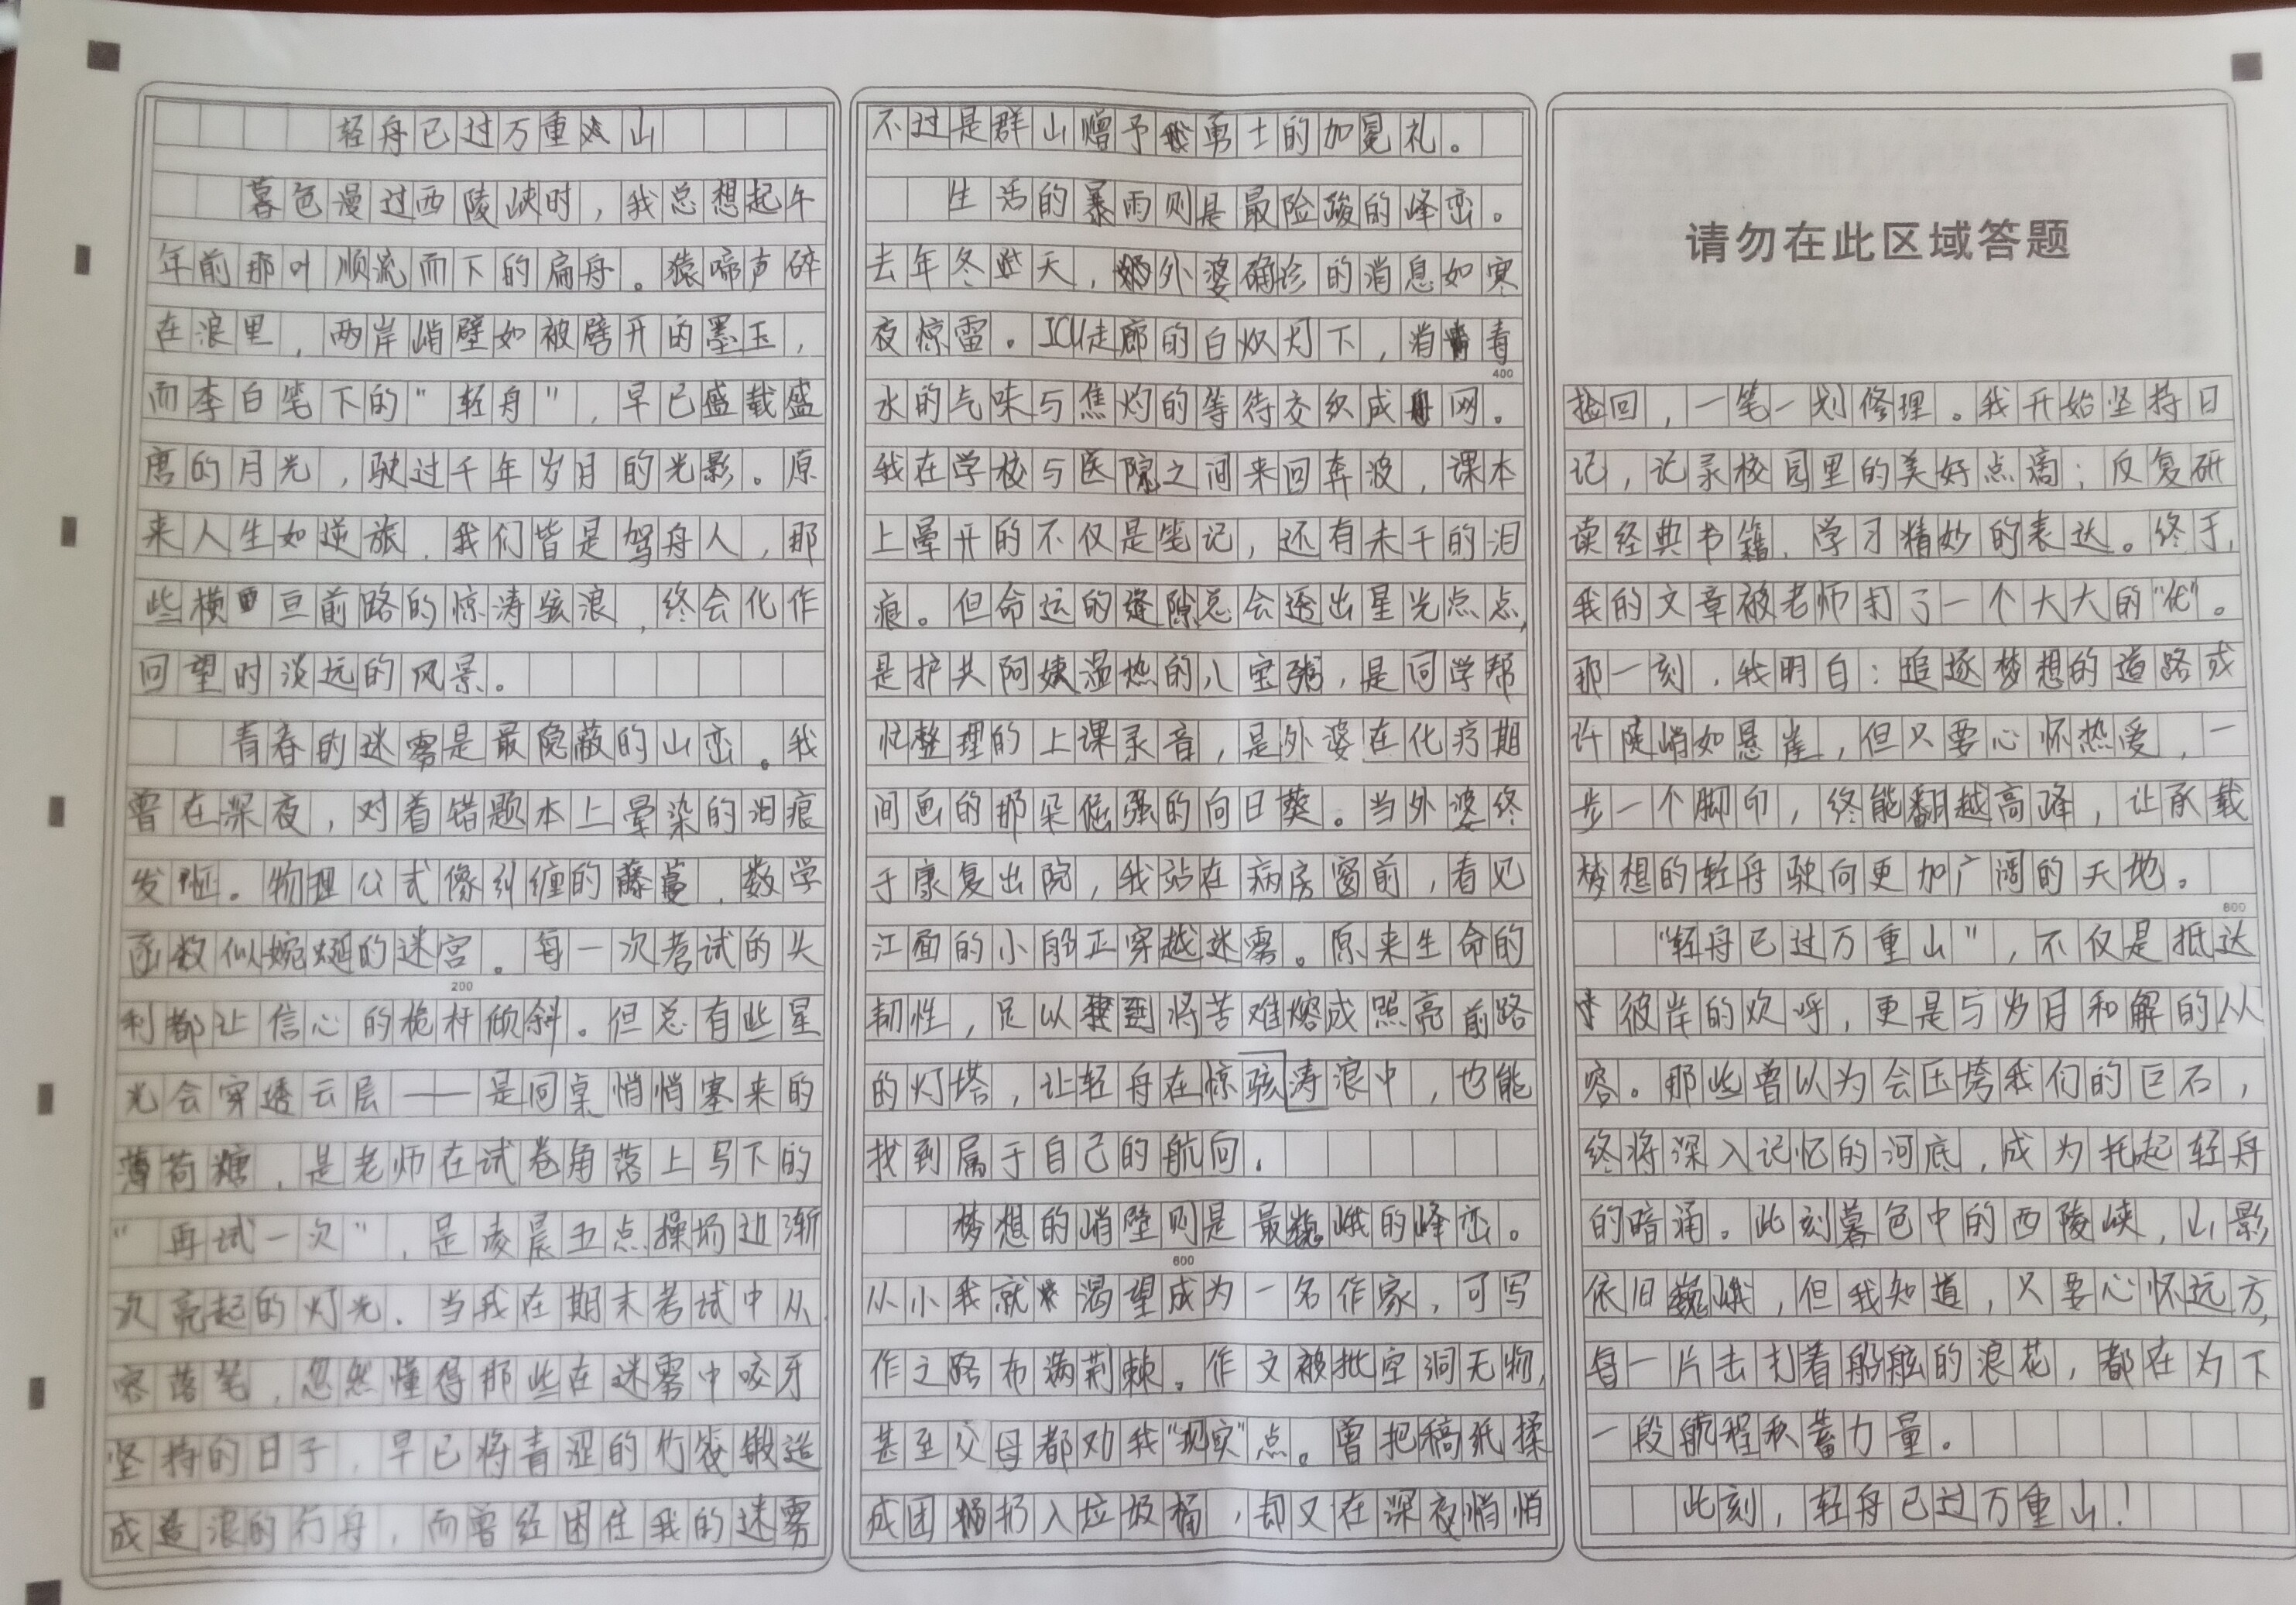 轻舟已过万重山
暮色漫过西陵峡时，我总想起千
年前那叶顺流而下的扁舟。猿啼声碎
在浪里，两岸峭壁如被劈开的墨玉，
而李白笔下的“轻舟”，早已盛载盛
唐的月光，驶过千年岁月的光影。原
来人生如逆旅，我们皆是驾舟人，那
些横亘前路的惊涛骇浪，终会化作
回望时淡远的风景。
青春的迷雾是最隐蔽的山峦。我
曾在深夜，对着错题本上晕染的泪痕
发怔。物理公式像纠缠的藤蔓，数学
函数似婉蜒的迷宫。每一次考试的失
200
利都让信心的桅杆倾斜。但总有些星
光会穿透云层——是同桌悄悄塞来的
薄荷糖，是老师在试卷角落上写下的
“再试一次”，是凌晨五点操场边渐
次亮起的灯光。当我在期末考试中从
容落笔，忽然懂得那些在迷雾中咬牙
坚持的日子，早已将青涩的竹筏锻造
成 浪的行舟，而曾经困住我的迷雾
不过是群山赠予勇士的加冕礼。
生活的暴雨则是最险峻的峰峦。
去年冬天，外婆确诊的消息如寒
夜惊雷。ICU走廊的白炽灯下，消毒
400
水的气味与焦灼的等待交织成网。
我在学校与医院之间来回奔波，课本
上晕开的不仅是笔记，还有未干的泪
痕。但命运的缝隙总会透出星光点点，
是护工阿姨温热的八宝粥，是同学帮
忙整理的上课录音，是外婆在化疗期
间画的那朵倔强的向日葵。当外婆终
于康复出院，我站在病房窗前，看见
江面的小船正穿越迷雾。原来生命的
韧性，足以将苦难熔成照亮前路
的灯塔，让轻舟在惊骇涛浪中，也能
找到属于自己的航向。
梦想的峭壁则是最巍峨的峰峦。
600
从小我就渴望成为一名作家，可写
作之路布满荆棘。作文被批空洞无物，
甚至父母都劝我“现实”点。曾把稿纸揉
成团扔入垃圾桶，却又在深夜悄悄
请勿在此区域答题
捡回，一笔一划修理。我开始坚持日
记，记录校园里的美好点滴；反复研
读经典书籍，学习精妙的表达。终于，
我的文章被老师打了一个大大的“优”。
那一刻，我明白：追逐梦想的道路或
许陡峭如悬崖，但只要心怀热爱，一
步一个脚印，终能翻越高峰，让承载
梦想的轻舟驶向更加广阔的天地。
800
“轻舟已过万重山”，不仅是抵达
彼岸的欢呼，更是与岁月和解的从
容。那些曾以为会压垮我们的巨石，
终将深入记忆的河底，成为托起轻舟
的暗涌。此刻暮色中的西陵峡，山影
依旧巍峨，但我知道，只要心怀远方，
每一片击打着船舷的浪花，都在为下
一段航程积蓄力量。
此刻，轻舟已过万重山！